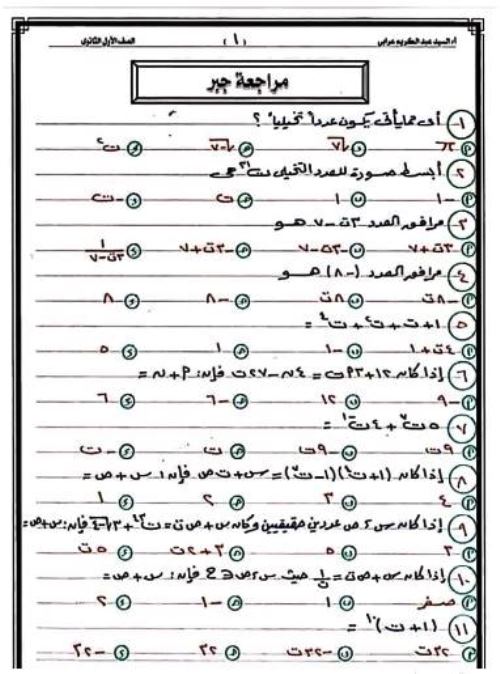 أ/ السيد عبد الكريم عرابي (١) الصف الأول الثانوى
مراجعة جبر
١ أى مما يأتى يكون عدداً تخيلياً ؟
أ π ب √٧ ج √-٧ د ت٢
٢ أبسط صورة للعدد التخيلى ت
أ -١ ب ١ ج ت د -ت
٣ مرافق العدد ٣ت - ٧ هو
أ ٣ت + ٧ ب -٣ت - ٧ ج -٣ت + ٧ د ١/(٣ت - ٧)
٤ مرافق العدد (-٨) هو
أ -٨ت ب ٨ت ج -٨ د ٨
٥ ١ + ت + ت٢ + ت٤ =
أ ٤ت + ١ ب -١ ج ١ د ٥
٦ إذا كان ١٢ + ٣أت = ٤ن - ٢٧ت فإن: أ + ن =
أ -٩ ب ١٢ ج -٦ د ٦
٧ ٥ت + ٤ت =
أ ٩ت ب -٩ت ج ت د -ت
٨ إذا كان (١ + ت)(١ - ت) = س + ت ص فإن: س + ص =
أ ٤ ب ٣ ج ٢ د ١
٩ إذا كان س ، ص عددين حقيقيين وكان س + ص ت = ت + ٣√-٤ فإن: س + ص =
أ ٣ ب ٥ ج ٣ + ٢ت د ٥ت
١٠ إذا كان س + ص ت = ١/ت حيث س ، ص ∈ ح فإن: س + ص =
أ صفر ب ١ ج -١ د ٢
١١ (١ + ت)١٠ =
أ ٣٢ت ب -٣٢ت ج ٣٢ د -٣٢